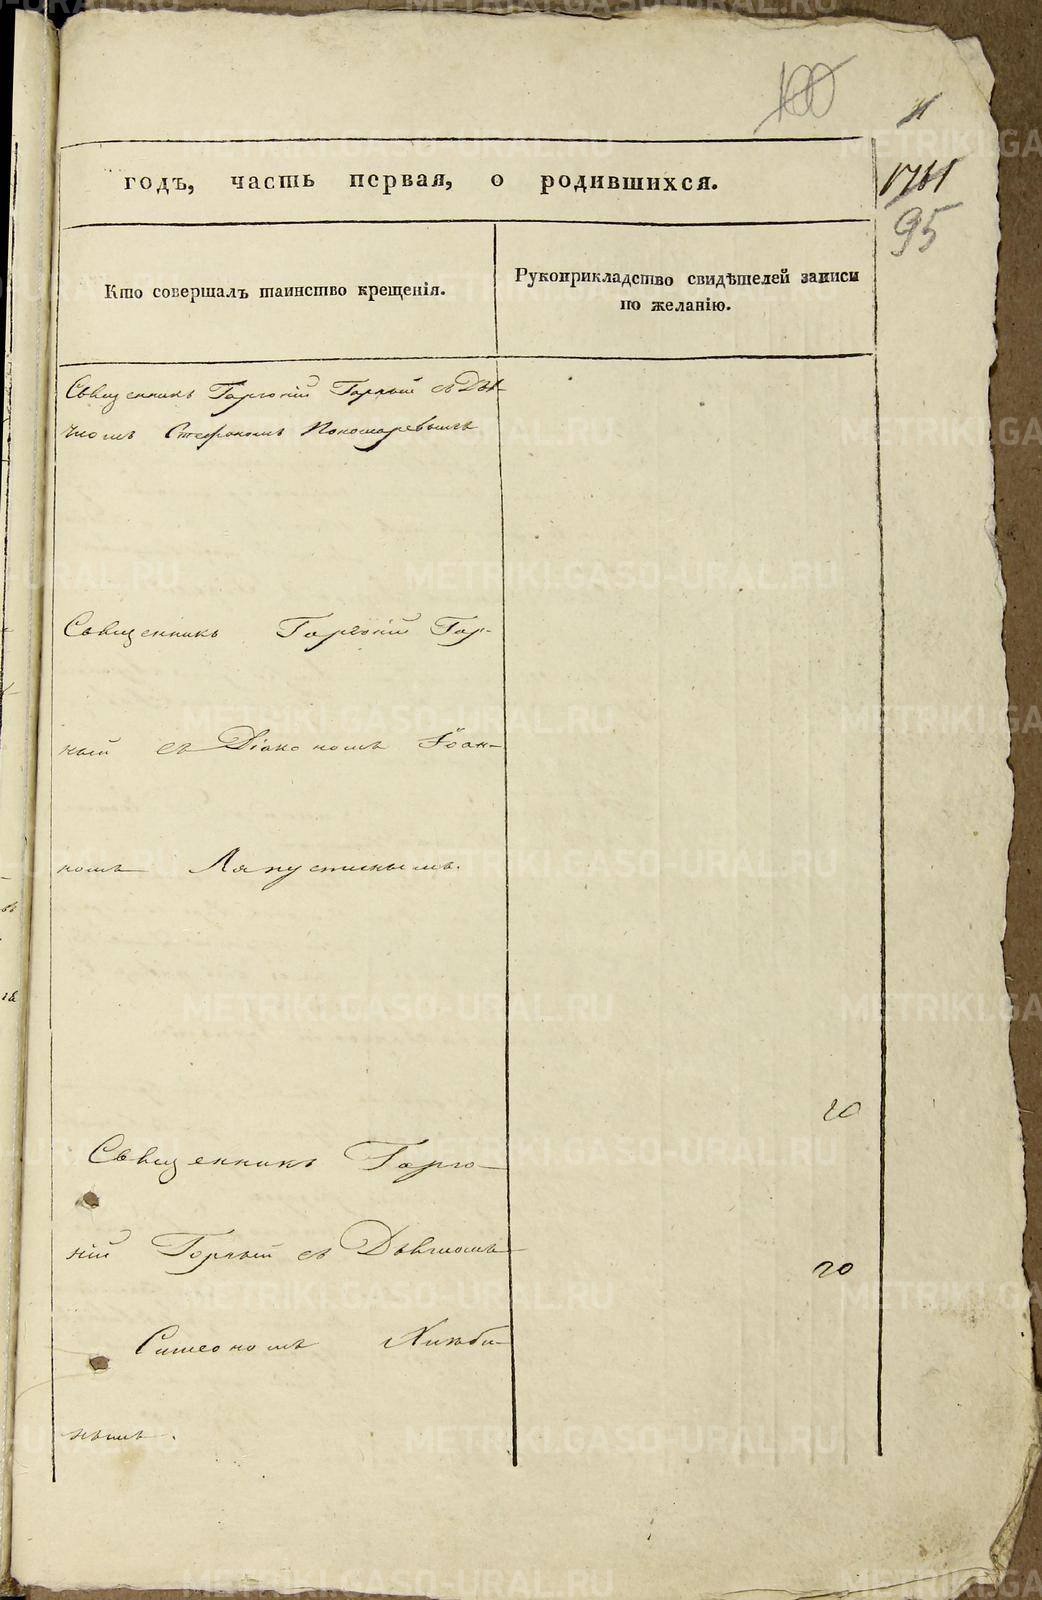 100
95
годъ, часть первая, о родившихся.
Кто совершалъ таинство крещенія.
Рукоприкладство свидѣтелей записи
по желанію.
Священникъ Горгоній Горный съ Дья-
чкомъ Стефаномъ Пономаревымъ
Священникъ Горгоній Гор-
ный съ Діакономъ Іоан-
номъ Ляпустинымъ.
20
Священникъ Горго-
ній Горный съ Дьячкомъ
20
Симеономъ
нымъ.
METRIKI.GASO-URAL.RU